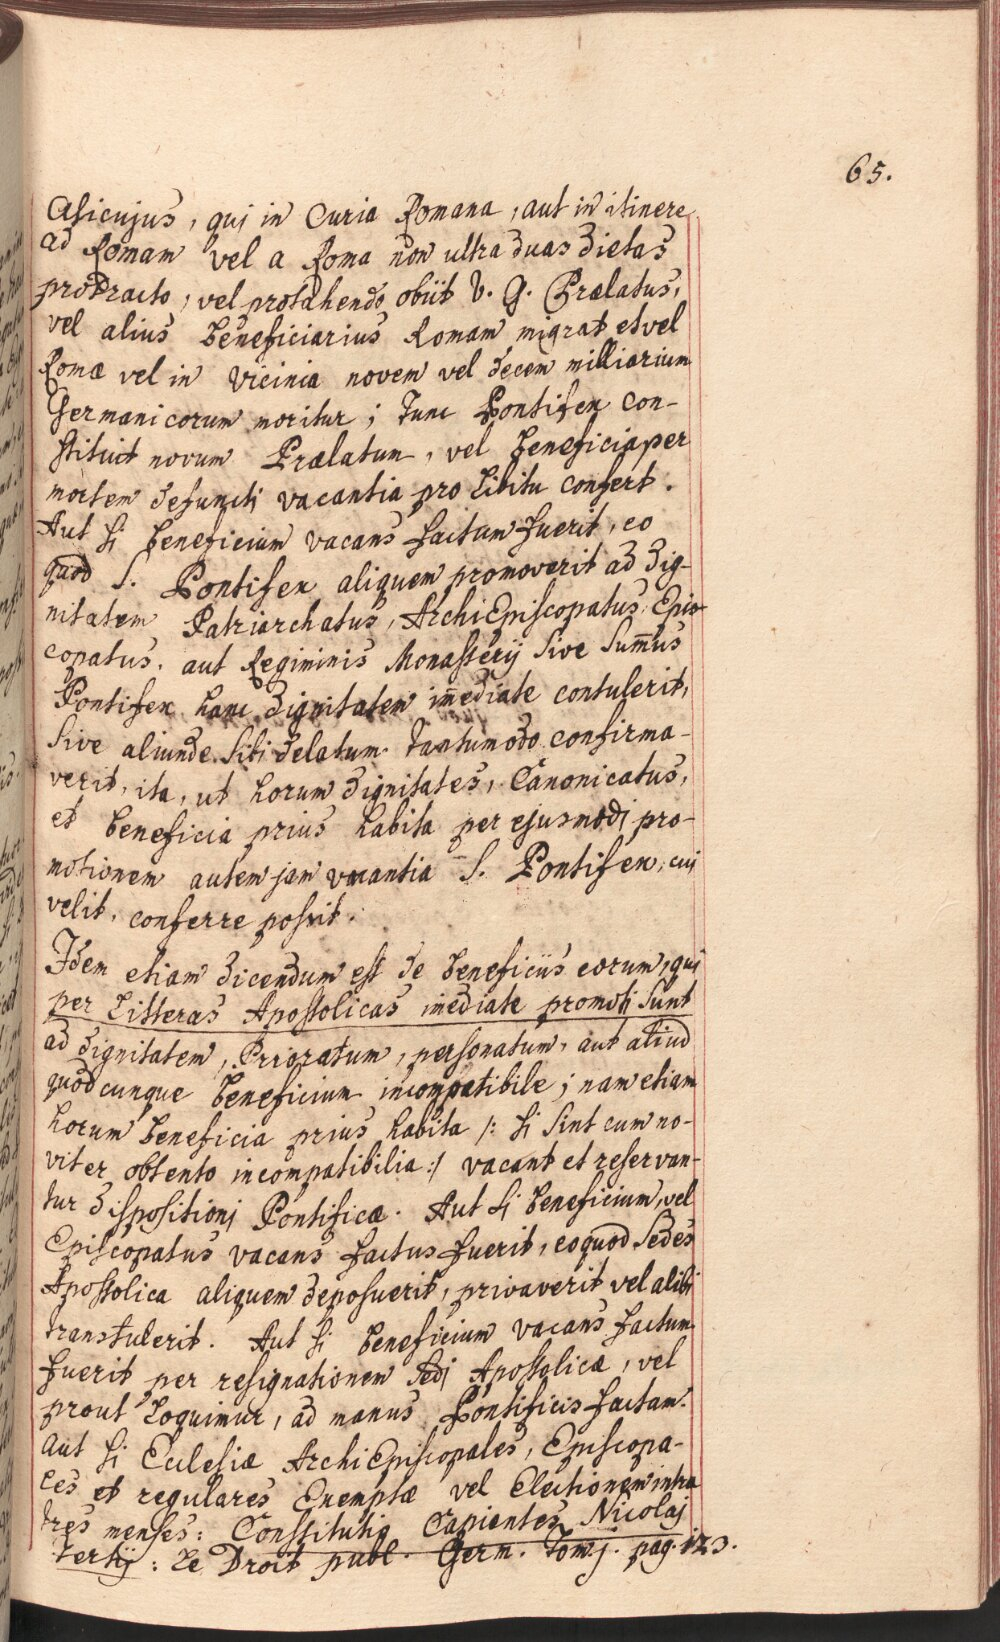 65.
Alicujus, qui in Curia Romana, aut in itinere
ad Romam vel a Roma non ultra duas dietas
protracto, vel protahendo obiit V. G. Prælatus,
vel alius Beneficiarius Romam migrat et vel
Romæ vel in Vicinia novem vel decem milliarium
Germanicorum moritur; tunc Pontifex con-
stituit novum Prælatum, vel beneficia per
mortem defuncti vacantia pro libitu confert.
Aut si beneficium vacans factum fuerit, eo
quod S. Pontifex aliquem promoverit ad dig-
nitatem Patriarchatus, ArchiEpiscopatus, Epis-
copatus, aut Regiminis Monasterij sive Sum̄us
Pontifex hanc dignitatem im̄ediate contulerit,
sive aliunde sibi delatum tantumodo confirma-
verit, ita, ut horum dignitates, Canonicatus,
et beneficia prius habita per ejusmodi pro-
motionem autem jam vacantia S. Pontifex, cui
velit, conferre possit.
Idem etiam dicendum est de beneficiis eorum, qui
per Litteras Apostolicas imediate promoti sunt
ad dignitatem, Prioratum, personatum, aut aliud
quodcunque beneficium incompatibile; nam etiam
horum beneficia prius habita /: si sint cum no-
viter obtento incompatibilia :/ vacant et reservan-
tur dispositioni Pontificæ. Aut si beneficium, vel
Episcopatus vacans factus fuerit, eo quod Sedes
Apostolica aliquem deposuerit, privaverit vel alibi
transtulerit. Aut si beneficium vacans factum
fuerit per resignationem Sedi Apostolicæ, vel
prout loquimur, ad manus Pontificis factam.
aut si Ecclesiæ ArchiEpiscopales, Episcopa-
les et regulares Exemptæ vel Electionem intra
tres menses: Constitutio Capientes Nicolai
tertij: Le Droit publ. Germ. Tom j. pag. 123.